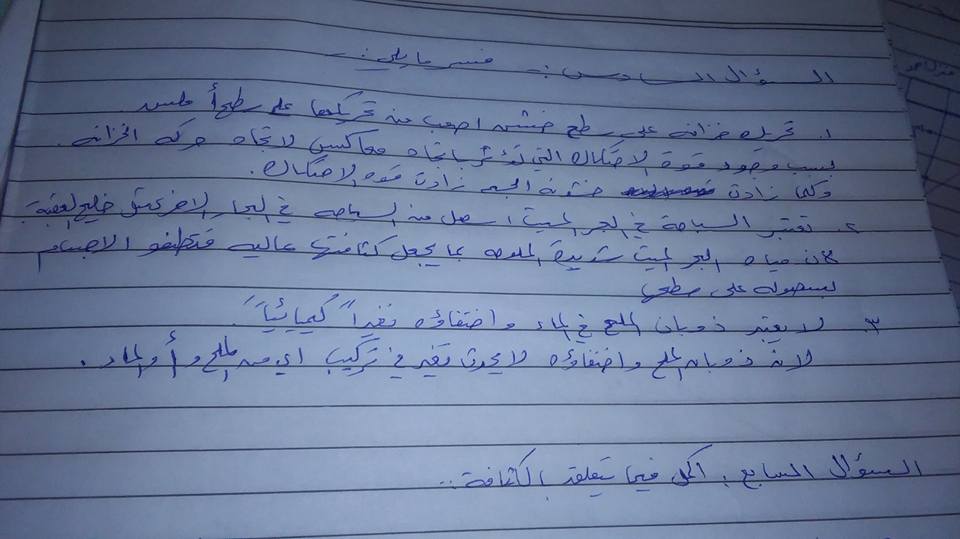 السؤال السادس :- فسر ما يلي :
١. تحريك خزانه على سطح خشن اصعب من تحريكها على سطح أملس
بسبب وجود قوة الاحتكاك التي تؤثر باتجاه معاكس لاتجاه حركه الخزانه .
وكلما زادت خشونه الجسم زادت قوه الاحتكاك .
٢. تعتبر السباحة في البحر الميت اسهل من السباحه في البحار الاخرى خليج العقبة
لان مياه البحر الميت شديدة الملوحه مما يجعل كثافتها عاليه فتطفو الاجسام
بسهوله على سطحها
٣. لا يعتبر ذوبان الملح في الماء واختفاؤه تغيراً كيميائياً .
لانه ذوبان الملح واختفاؤه لا يحدث تغير في تركيب اي من الملح و أو الماء .
السؤال السابع : اكمل فيما يتعلق بالكثافة :.